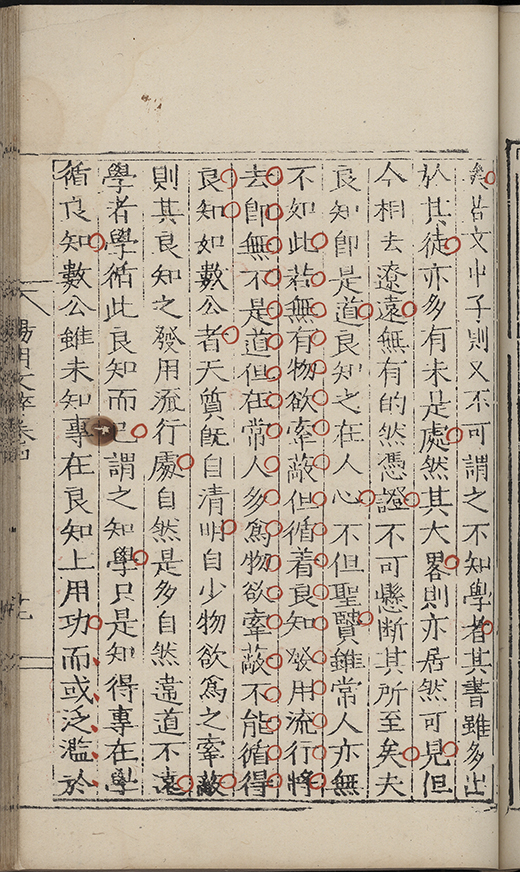 矣若文中子則又不可謂之不知學者其書雖多出
於其徒亦多有未是處然其大畧則亦居然可見但
今相去遼遠無有的然憑證不可懸斷其所至矣夫
良知即是道良知之在人心不但聖賢雖常人亦無
不如此若無有物欲牽蔽但循着良知發用流行將
去即無不是道但在常人多爲物欲牽蔽不能循得
良知如數公者天質既自清明自少物欲爲之牽蔽
則其良知之發用流行處自然是多自然違道不遠
學者學循此良知而已謂之知學只是知得專在學
循良知數公雖未知專在良知上用功而或泛濫於
陽明文粹卷四